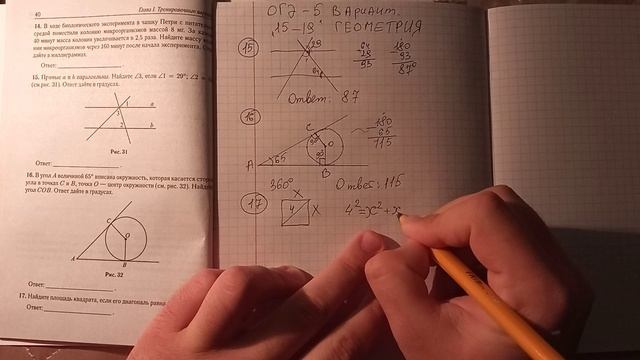 40
Глава I. Тренировочные
14. В ходе биологического эксперимента в чашку Петри с питательной
поместили колонию микроорганизмов массой 8 мг. За каждые
40 минут масса колонии увеличивается в 2,5 раза. Найдите массу
микроорганизмов через 160 минут после начала эксперимента.
дайте в миллиграммах.
Ответ:
15. Прямые a и b параллельны. Найдите ∠3, если ∠1 = 29°; ∠2 =
(см. рис. 31). Ответ дайте в градусах.
1
a
3
2
b
Рис. 31
Ответ:
16. В угол A величиной 65° вписана окружность, которая касается сторон
угла в точках C и B, точка O — центр окружности (см. рис. 32). Найдите
угол COB. Ответ дайте в градусах.
C
O
A
B
Рис. 32
Ответ:
17. Найдите площадь квадрата, если его диагональ равна
Ответ:
ОГЭ - 5 ВАРИАНТ.
15-19. ГЕОМЕТРИЯ
15
29
64
64
29
93
180
93
87°
Ответ: 87
16
C
90
O
90
A
65
B
360°
180
65
115
Ответ: 115
17
x
4
x
4²=x²+x